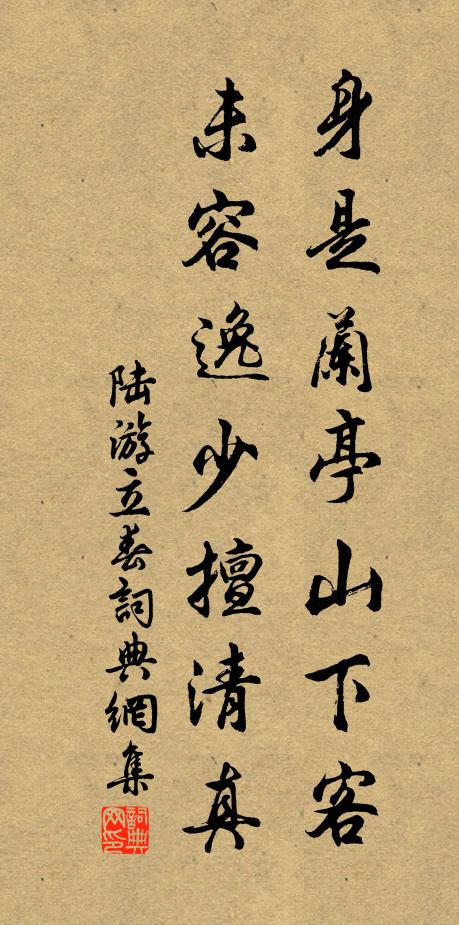 身是蘭亭山下客
未容逸少擅清真
陸游立春詞典網集
詞典网印